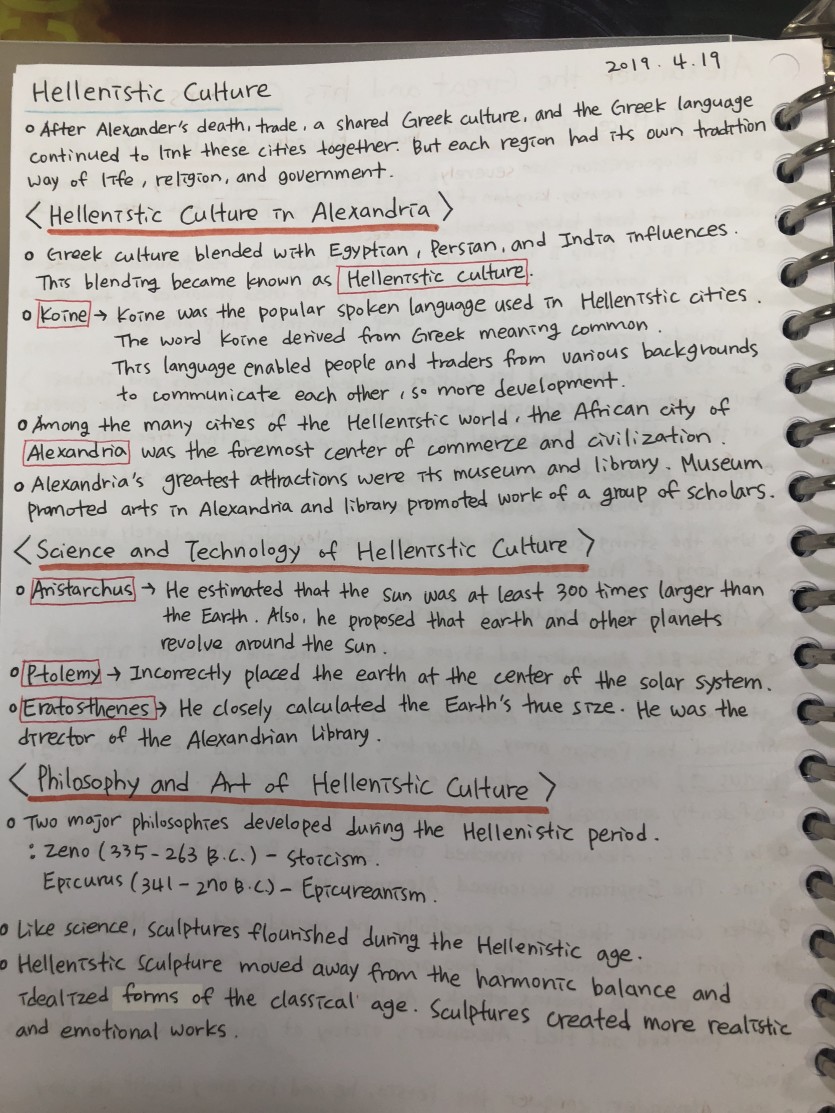 2019. 4. 19
Hellenistic Culture
o After Alexander's death, trade, a shared Greek culture, and the Greek language
continued to link these cities together. But each region had its own tradition
way of life, religion, and government.
< Hellenistic Culture in Alexandria >
o Greek culture blended with Egyptian, Persian, and India influences.
This blending became known as Hellenistic culture.
o Koine → Koine was the popular spoken language used in Hellenistic cities.
The word koine derived from Greek meaning common.
This language enabled people and traders from various backgrounds
to communicate each other, so more development.
o Among the many cities of the Hellenistic world, the African city of
Alexandria was the foremost center of commerce and civilization.
o Alexandria's greatest attractions were its museum and library. Museum
promoted arts in Alexandria and library promoted work of a group of scholars.
< Science and Technology of Hellenistic Culture >
o Aristarchus → He estimated that the sun was at least 300 times larger than
the Earth. Also, he proposed that earth and other planets
revolve around the sun.
o Ptolemy → Incorrectly placed the earth at the center of the solar system.
o Eratosthenes → He closely calculated the Earth's true size. He was the
director of the Alexandrian Library.
< Philosophy and Art of Hellenistic Culture >
o Two major philosophies developed during the Hellenistic period.
: Zeno (335-263 B.C.) - Stoicism.
Epicurus (341-270 B.C) - Epicureanism.
o Like science, sculptures flourished during the Hellenistic age.
o Hellenistic sculpture moved away from the harmonic balance and
idealized forms of the classical age. Sculptures created more realistic
and emotional works.